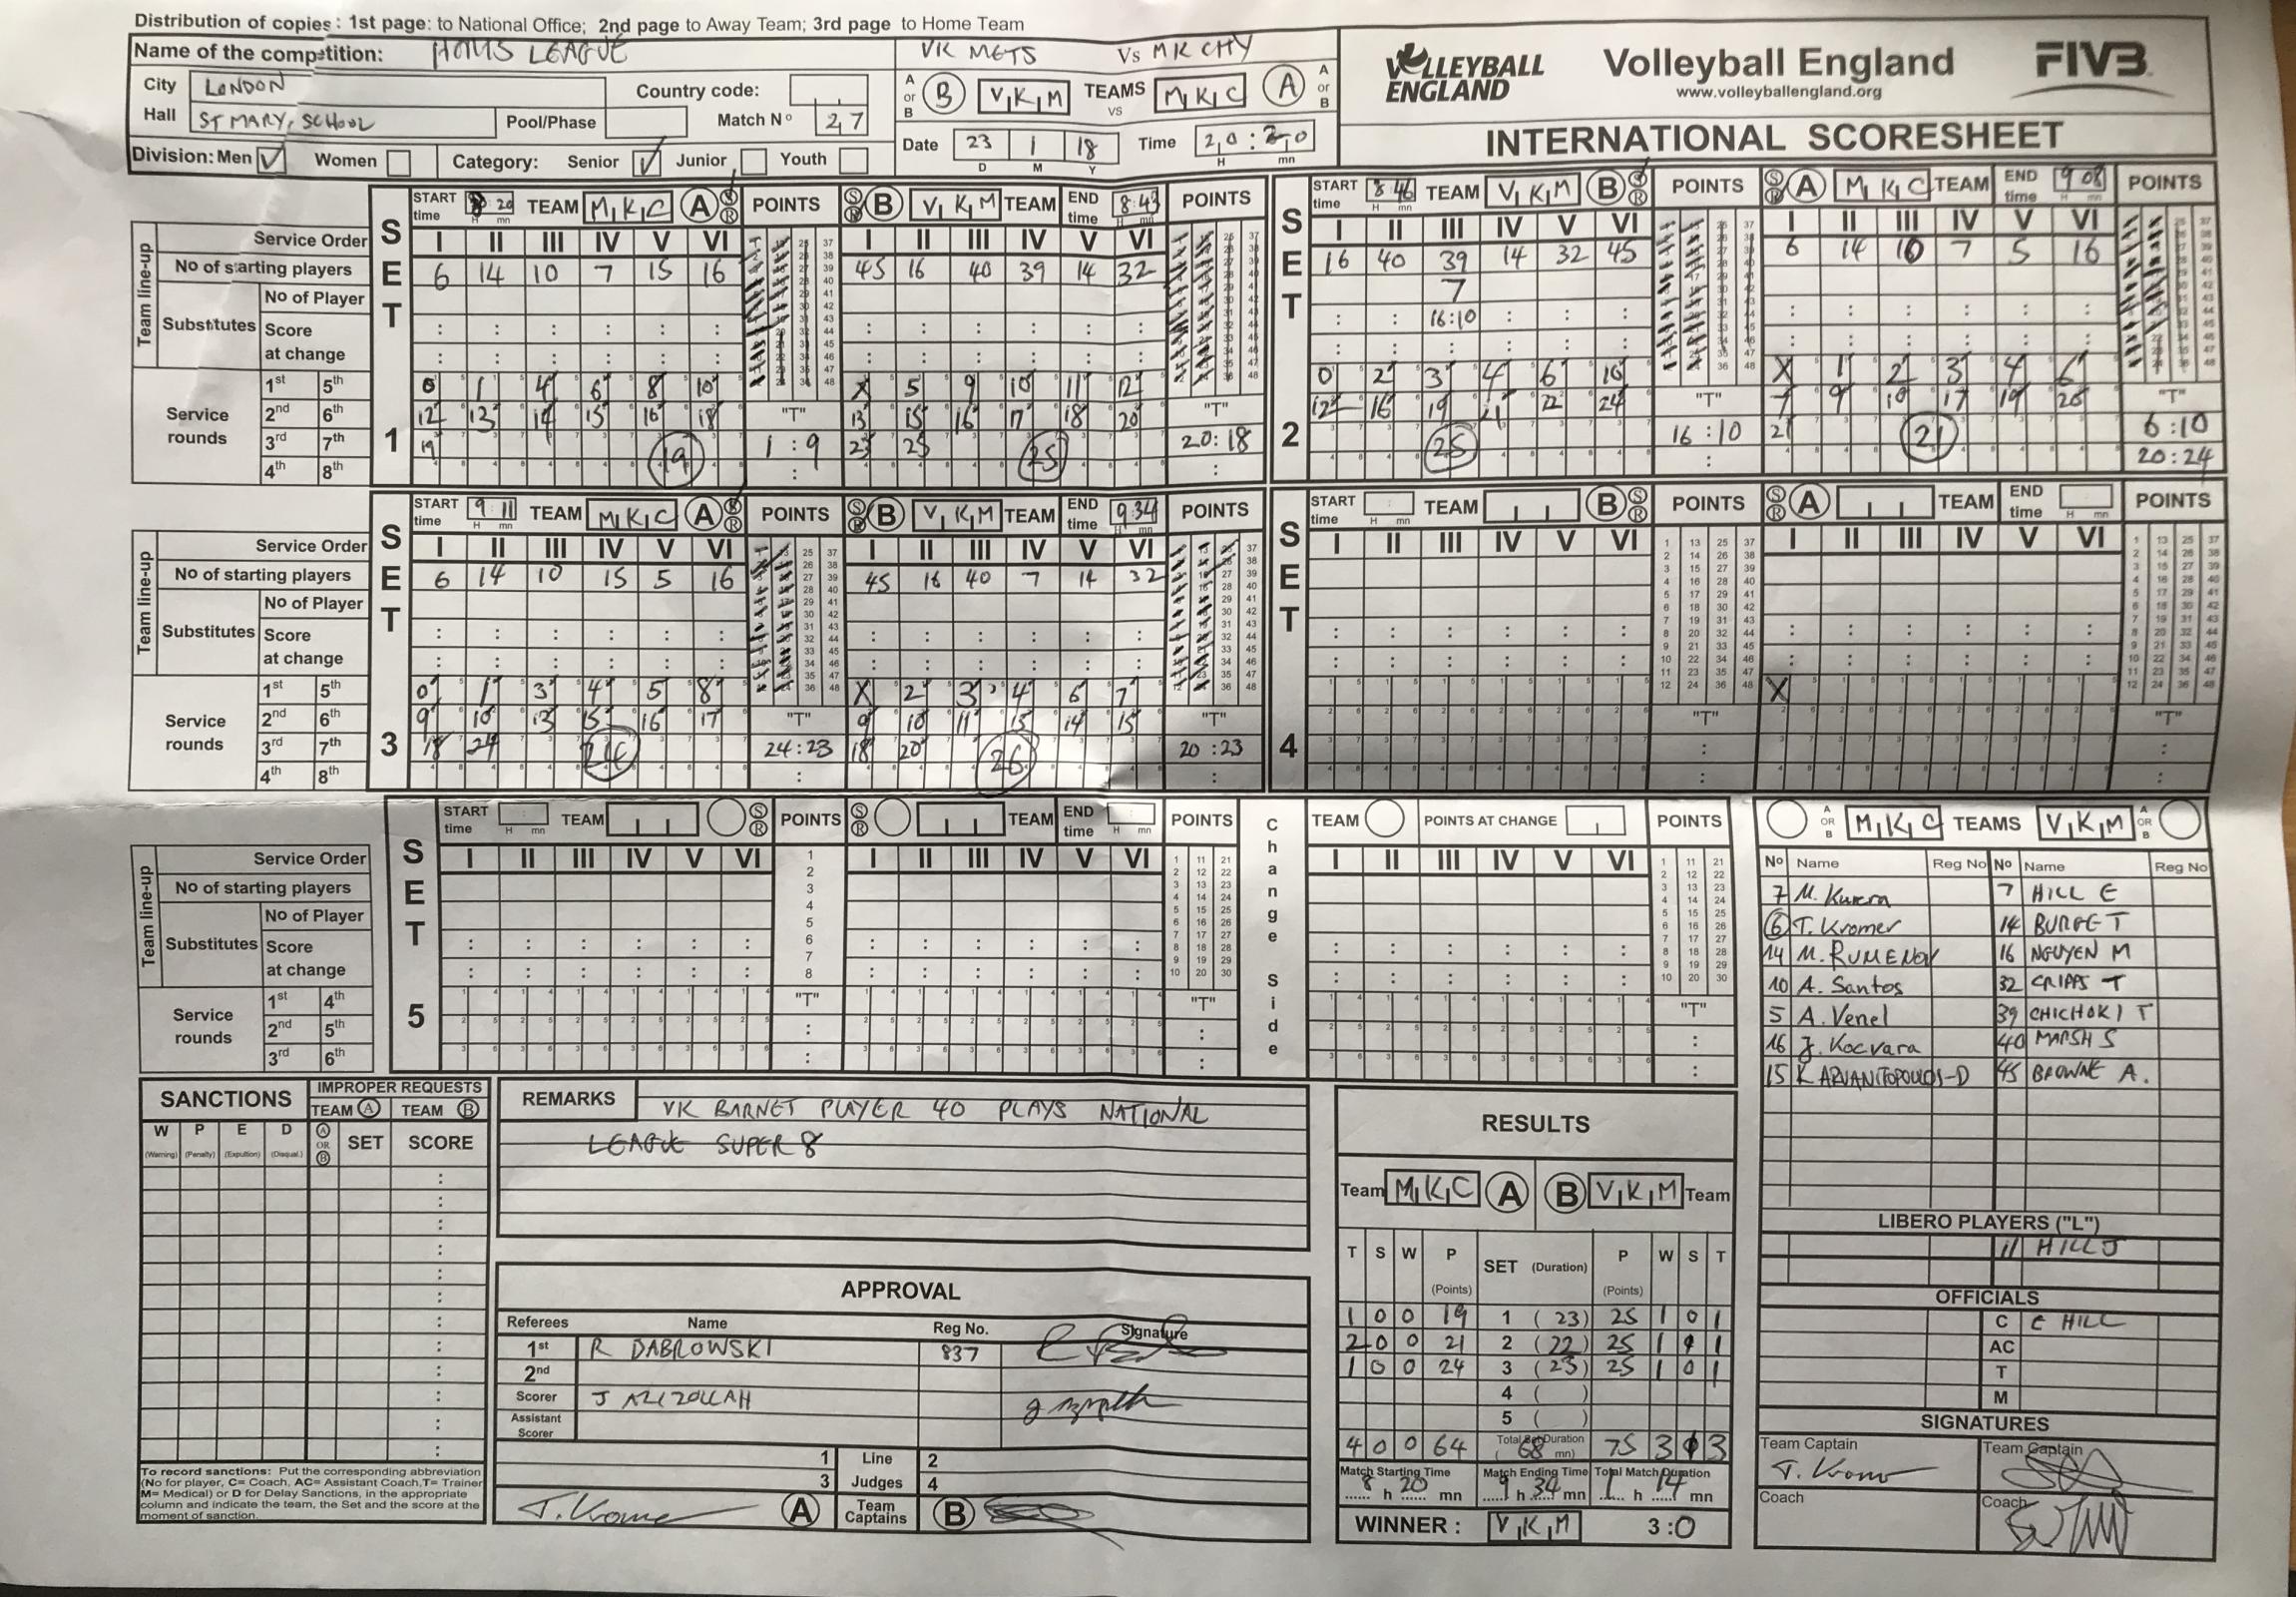 Distribution of copies: 1st page: to National Office; 2nd page to Away Team; 3rd page to Home Team
Name of the competition: HOMS LEAGUE
VK METS Vs MK CITY
City LONDON Country code:
Hall ST MARY, SCHOOL Pool/Phase Match Nº 27
Division: Men ✓ Women Category: Senior ✓ Junior Youth
A or B B VKM TEAMS vs MKC A A or B
Date 23 1 18 Time 20:20
D M Y H mn
VOLLEYBALL ENGLAND
Volleyball England
www.volleyballengland.org
FIVB
INTERNATIONAL SCORESHEET
SET 1
START time 8:20 TEAM MKC A S R POINTS S R B VKM TEAM END time 8:43 POINTS
Team line-up
Service Order I II III IV V VI I II III IV V VI
No of starting players 6 14 10 7 15 16 45 16 40 39 14 32
Substitutes No of Player
Score at change
Service rounds
1st 5th 0 1 4 6 8 10 X 5 9 10 11 12
2nd 6th 12 13 14 15 16 18 "T" 13 15 16 17 18 20 "T"
3rd 7th 19 19 1:9 23 25 25 20:18
4th 8th
SET 2
START time 8:46 TEAM VKM B S R POINTS S R A MKC TEAM END time 9:08 POINTS
I II III IV V VI I II III IV V VI
16 40 39 14 32 45 6 14 10 7 5 16
7
16:10
0 2 3 4 6 10 X 1 2 3 4 6
12 16 19 21 22 24 "T" 7 9 10 17 19 20 "T"
25 16:10 21 21 6:10
20:24
SET 3
START time 9:11 TEAM MKC A S R POINTS S R B VKM TEAM END time 9:34 POINTS
Team line-up
Service Order I II III IV V VI I II III IV V VI
No of starting players 6 14 10 15 5 16 45 16 40 7 14 32
Substitutes No of Player
Score at change
Service rounds
1st 5th 0 1 3 4 5 8 X 2 3 4 6 7
2nd 6th 9 10 13 15 16 17 "T" 9 10 11 13 14 15 "T"
3rd 7th 18 24 24 24:23 18 20 26 20:23
4th 8th
SET 4
START time TEAM B S R POINTS S R A TEAM END time POINTS
I II III IV V VI I II III IV V VI
X
"T" "T"
SET 5
START time TEAM S R POINTS S R TEAM END time POINTS
Change Side
TEAM POINTS AT CHANGE POINTS
Team line-up
Service Order I II III IV V VI I II III IV V VI I II III IV V VI
No of starting players
Substitutes No of Player
Score at change
Service rounds
1st 4th "T" "T" "T"
2nd 5th
3rd 6th
A OR B MKC TEAMS VKM A OR B
Nº Name Reg No Nº Name Reg No
7 M. Kurera 7 HILL E
6 T. Kromer 14 BURGET
14 M. RUMENOV 16 NGUYEN M
10 A. Santos 32 CRIPPS T
5 A. Venel 39 CHICHOKI T
16 J. Kocvara 40 MARSH S
15 K ARVANITOPOULOS-D 45 BROWNE A.
LIBERO PLAYERS ("L")
11 HILL J
OFFICIALS
C E HILL
AC
T
M
SIGNATURES
Team Captain Team Captain
Coach Coach
SANCTIONS IMPROPER REQUESTS
TEAM A TEAM B
W (Warning) P (Penalty) E (Expultion) D (Disqual.) A OR B SET SCORE
To record sanctions: Put the corresponding abbreviation
(No for player, C= Coach, AC= Assistant Coach,T= Trainer
M= Medical) or D for Delay Sanctions, in the appropriate
column and indicate the team, the Set and the score at the
moment of sanction.
REMARKS
VK BARNET PLAYER 40 PLAYS NATIONAL
LEAGUE SUPER 8
APPROVAL
Referees Name Reg No. Signature
1st R DABROWSKI 837
2nd
Scorer J AZIZOLLAH
Assistant Scorer
1 Line 2
3 Judges 4
A Team Captains B
RESULTS
Team MKC A B VKM Team
T S W P (Points) SET (Duration) P (Points) W S T
1 0 0 19 1 (23) 25 1 0 1
2 0 0 21 2 (22) 25 1 1 1
1 0 0 24 3 (23) 25 1 0 1
4 ( )
5 ( )
4 0 0 64 Total Set Duration (68 mn) 75 3 1 3
Match Starting Time Match Ending Time Total Match Duration
8 h 20 mn 9 h 34 mn 1 h 14 mn
WINNER: VKM 3:0